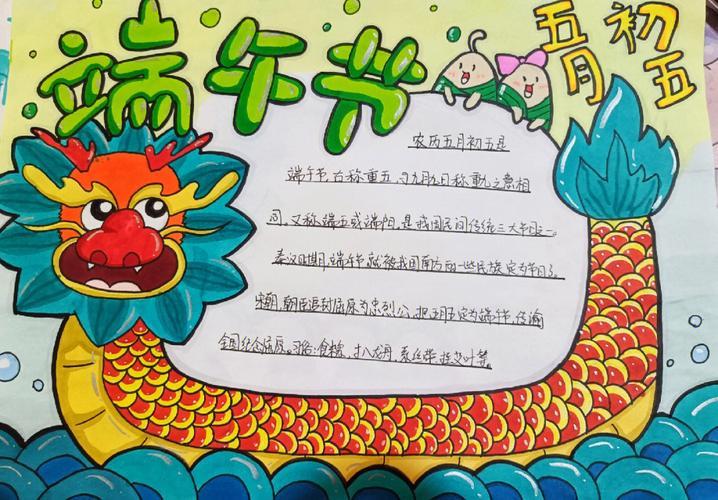 端午节
五月
初五
农历五月初五是
端午节, 古称重五, 与九月九日称重九之意相
同, 又称端五或端阳, 是我国民间传统三大节日之一。
秦汉时期, 端午节就被我国南方的一些民族定为节日了。
宋朝, 朝臣追封屈原为忠烈公, 把五月五定为端午节,
全国纪念屈原。习俗:食粽, 扒龙舟, 系丝带, 挂艾叶等